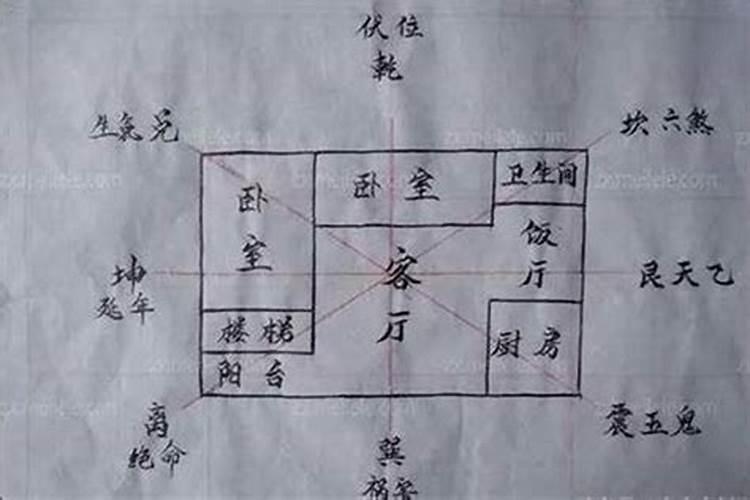 伏位
乾
生氣兑
坎六煞
卧室
卧室
卫生间
饭厅
客厅
坤
延年
艮天乙
楼梯
厨房
阳台
离
绝命
震五鬼
巽
祸害